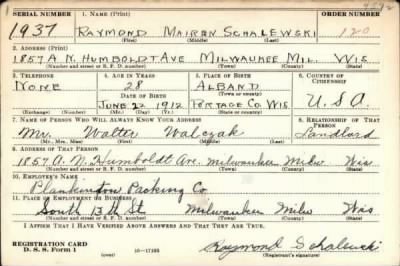 SERIAL NUMBER 1. NAME (Print) ORDER NUMBER
1937 RAYMOND MAIREN SCHALEWSKI 120
(First) (Middle) (Last)
2. ADDRESS (Print)
1857 A N. HUMBOLDT AVE MILWAUKEE MIL. WIS
(Number and street or R. F. D. number) (Town) (County) (State)
3. TELEPHONE 4. AGE IN YEARS 5. PLACE OF BIRTH 6. COUNTRY OF CITIZENSHIP
NONE 28 ALBAND U.S.A.
DATE OF BIRTH (Town or county)
JUNE 22 1912 PORTAGE CO. WIS
(Exchange) (Number) (Mo.) (Day) (Yr.) (State or country)
7. NAME OF PERSON WHO WILL ALWAYS KNOW YOUR ADDRESS 8. RELATIONSHIP OF THAT PERSON
Mr. Walter Walczak Landlord
(Mr., Mrs., Miss) (First) (Middle) (Last)
9. ADDRESS OF THAT PERSON
1857 A. N. Humboldt Ave. Milwaukee Milw Wis
(Number and street or R. F. D. number) (Town) (County) (State)
10. EMPLOYER'S NAME
Plankinton Packing Co
11. PLACE OF EMPLOYMENT OR BUSINESS
South 13th St Milwaukee Milw Wis
(Number and street or R. F. D. number) (Town) (County) (State)
I AFFIRM THAT I HAVE VERIFIED ABOVE ANSWERS AND THAT THEY ARE TRUE.
REGISTRATION CARD
D. S. S. Form 1 (over) 16—17105 Raymond Schalewski
(Registrant's signature)